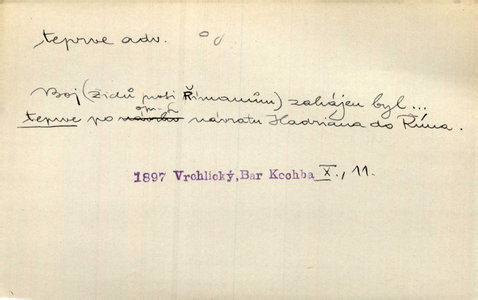 teprve adv.
Boj (židů proti Římanům) zahájen byl...
teprve po návratu Hadriána do Říma.
1897 Vrchlický, Bar Kochba X., 11.